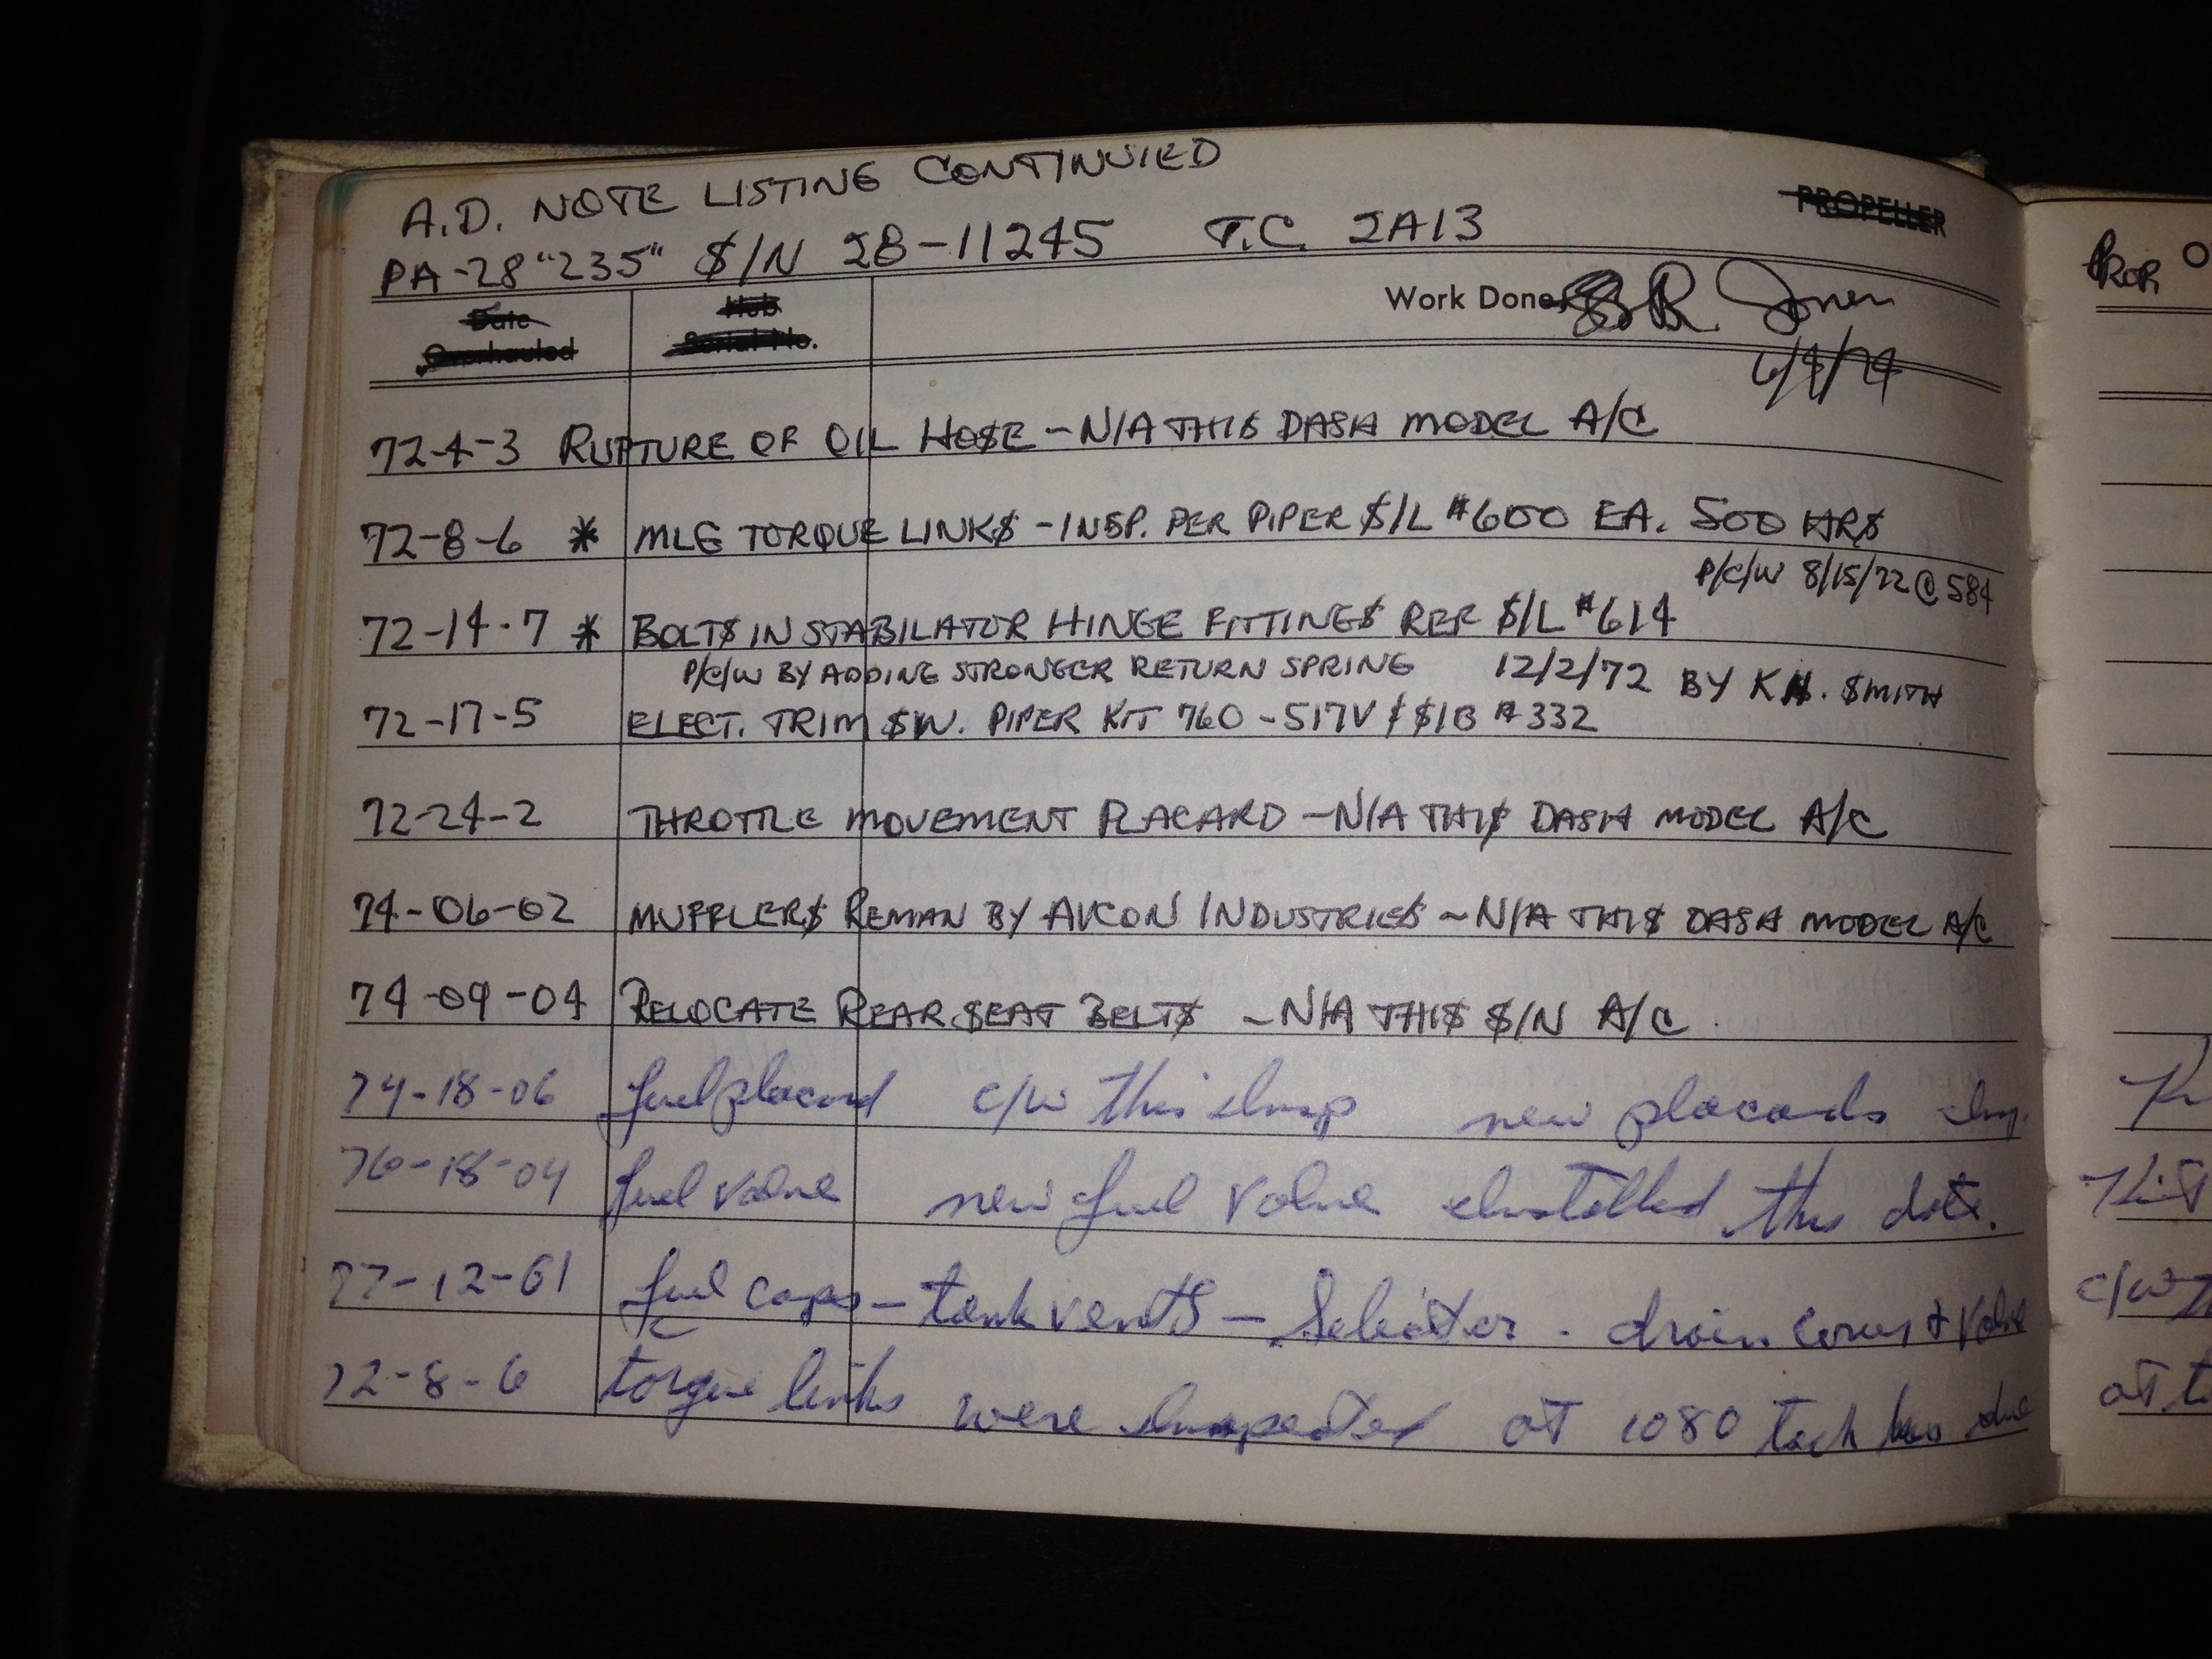 A.D. NOTE LISTING CONTINUIED
PA-28 "235" S/N 28-11245 T.C. 2A13
PROPELLER
Date Overhauled
Hub Serial No.
Work Done
Jones
6/4/74
72-4-3 RUPTURE OF OIL HOSE - N/A THIS DASH MODEL A/C
72-8-6 * MLG TORQUE LINKS - INSP. PER PIPER S/L #600 EA. 500 HRS
P/C/W 8/15/72 @ 584
72-14-7 * BOLTS IN STABILATOR HINGE FITTINGS PER S/L #614
P/C/W BY ADDING STRONGER RETURN SPRING 12/2/72 BY K.H. SMITH
72-17-5 ELECT. TRIM SW. PIPER KIT 760-517V & S/B #332
72-24-2 THROTTLE MOVEMENT PLACARD - N/A THIS DASH MODEL A/C
74-06-02 MUFFLERS REMAN BY AVCON INDUSTRIES - N/A THIS DASH MODEL A/C
74-09-04 RELOCATE REAR SEAT BELTS - N/A THIS S/N A/C
74-18-06 fuel placard c/w this insp new placards
76-18-04 fuel valve new fuel valve installed this date.
77-12-01 fuel caps - tank vents - Selector - drain cover & valve
72-8-6 torque links were inspected at 1080 tach hrs due
PROP
c/w
at